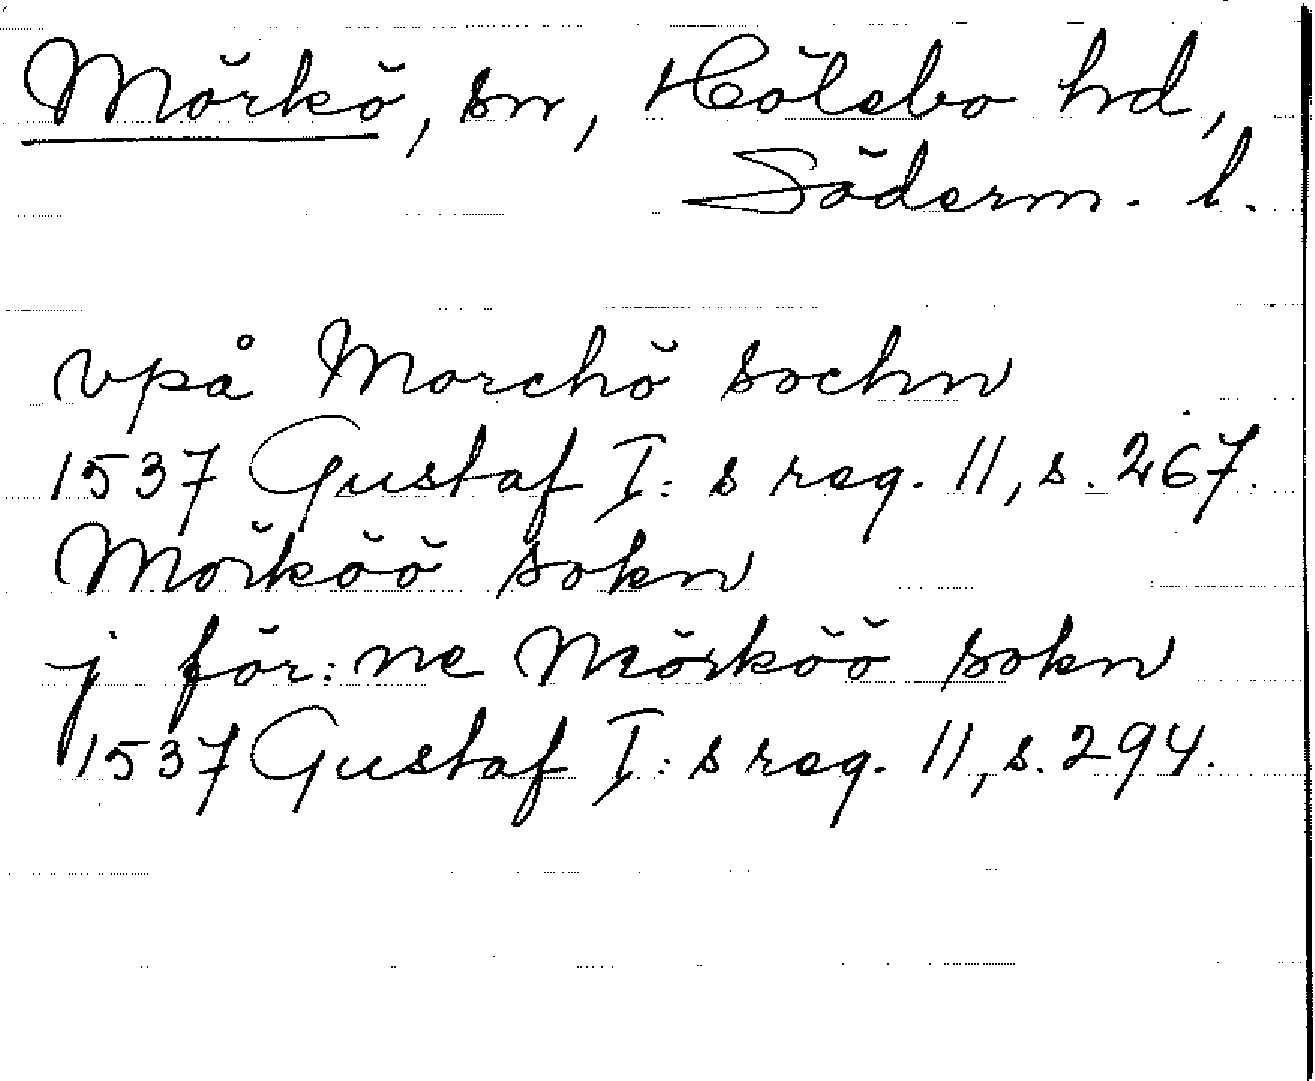 Mörkö, sn, Hölebo hd,
Söderm. l.
vpå Morchö sochn
1537 Gustaf I:s reg. 11, s. 267.
Morköö sokn
j för:ne Mörköö sokn
1537 Gustaf I:s reg. 11, s. 294.